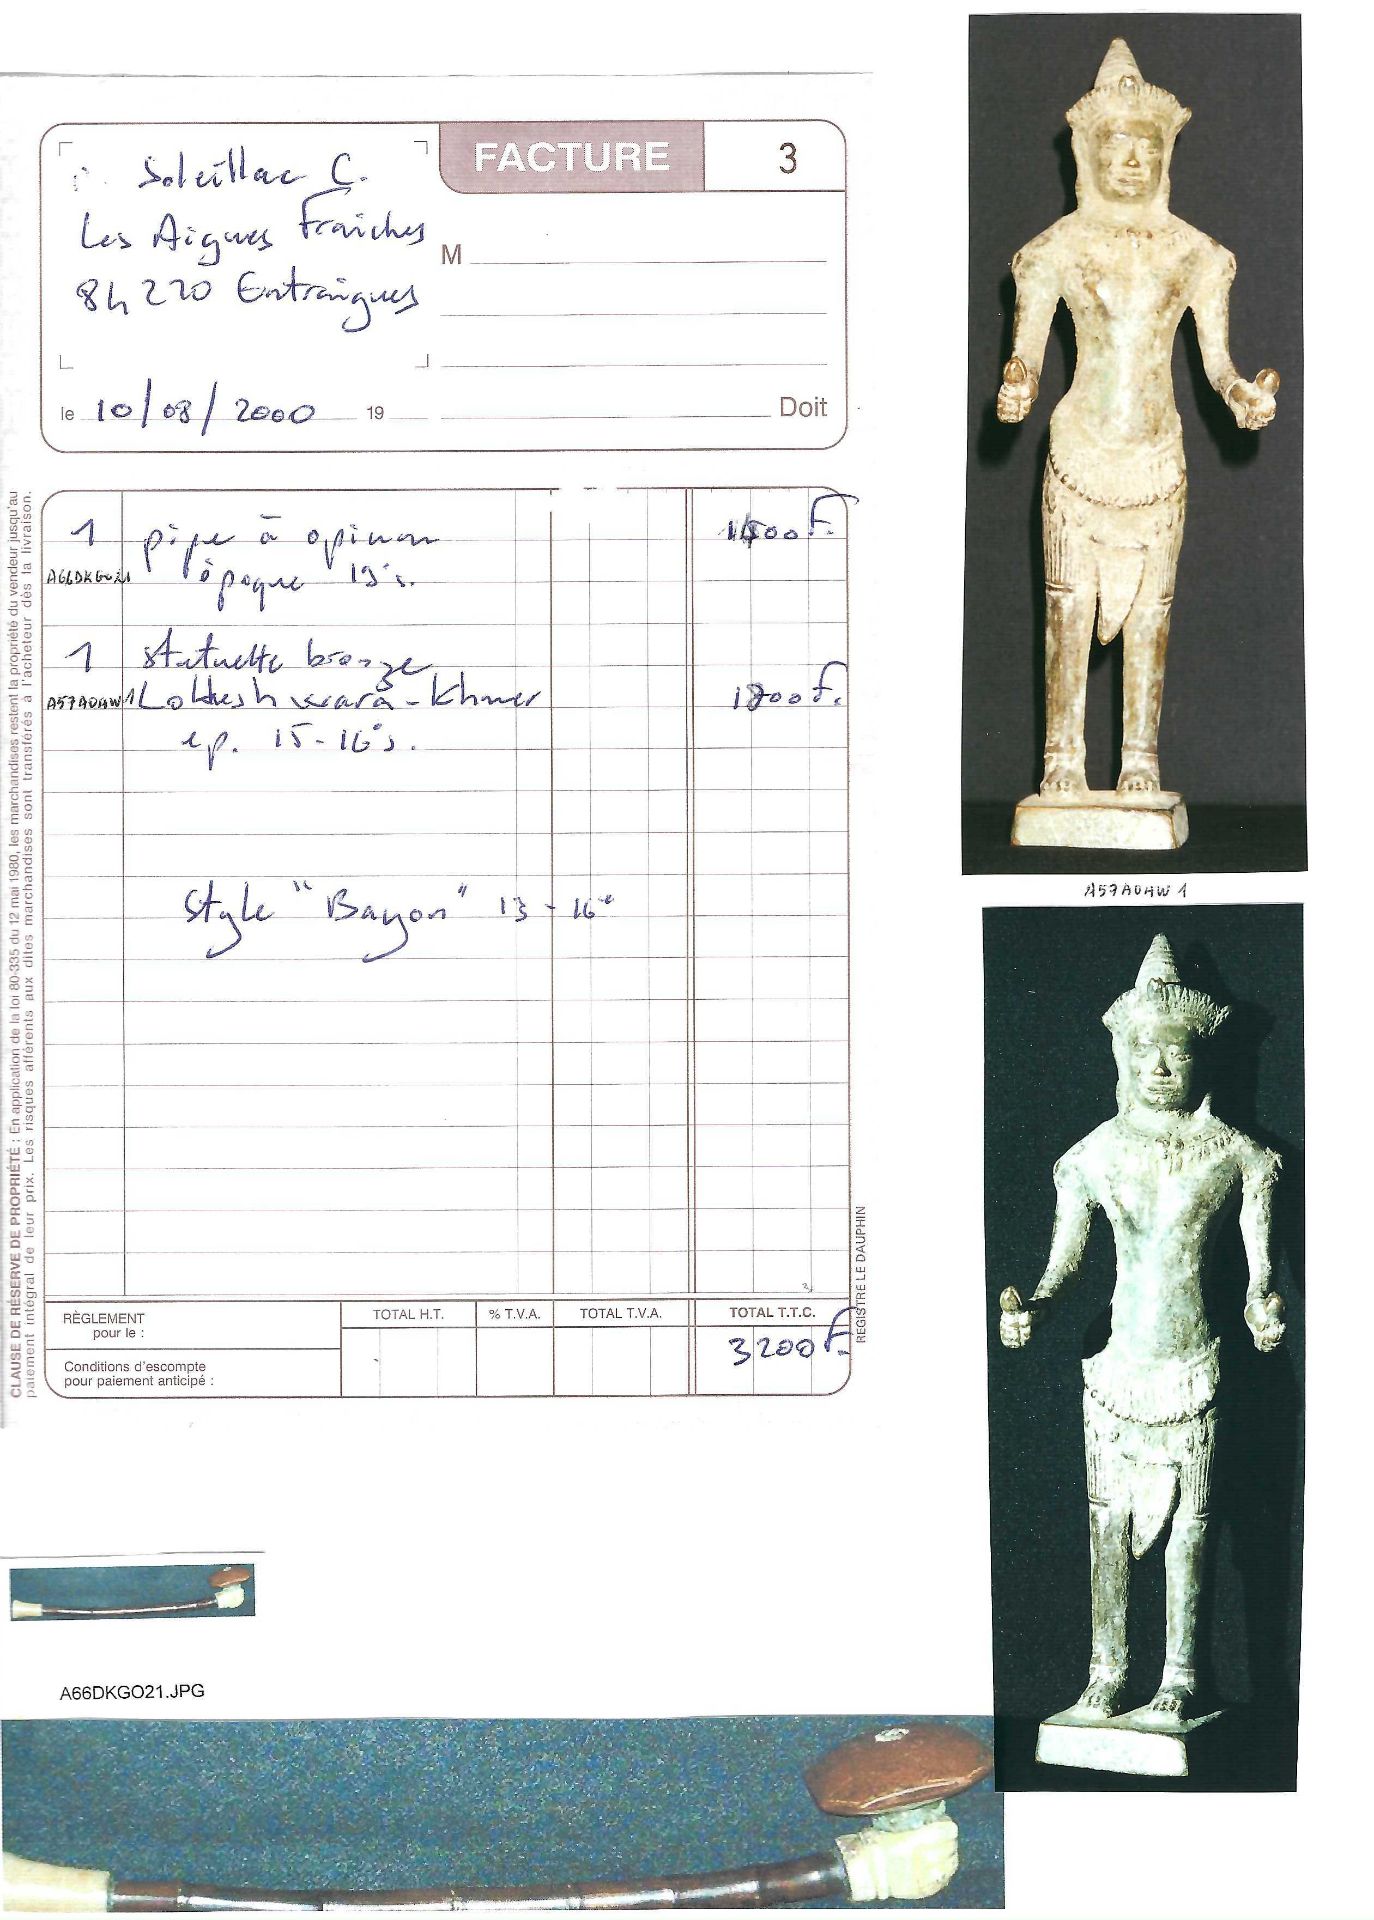 Soleillac C.
Les Aigues Fraîches
84220 Entraigues
FACTURE
3
M
le 10/08/2000 19
Doit
1 pipe à opium 1400 F.
A66DKGO21 époque 19°s.
1 statuette bronze
A57A0AW1 Lokkeshwara - Khmer 1800 F.
ep. 15-16°s.
Style "Bayon" 13-16e
RÈGLEMENT
pour le :
Conditions d'escompte
pour paiement anticipé :
TOTAL H.T.
% T.V.A.
TOTAL T.V.A.
TOTAL T.T.C.
3200 F.
CLAUSE DE RÉSERVE DE PROPRIÉTÉ : En application de la loi 80-335 du 12 mai 1980, les marchandises restent la propriété du vendeur jusqu'au
paiement intégral de leur prix. Les risques afférents aux dites marchandises sont transférés à l'acheteur dès la livraison.
REGISTRE LE DAUPHIN
A57A0AW1
A66DKGO21.JPG